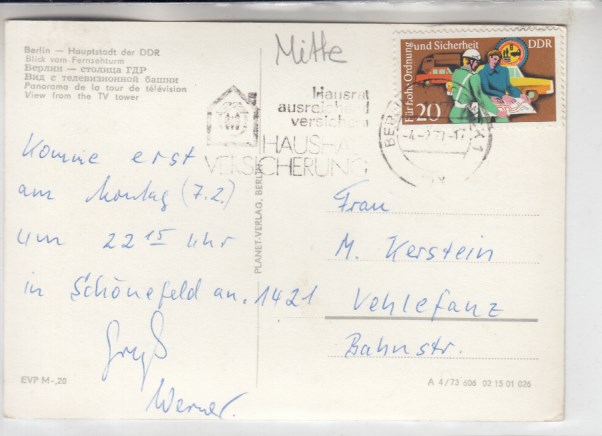 Berlin — Hauptstadt der DDR
Blick vom Fernsehturm
Берлин — столица ГДР
Вид с телевизионной башни
Panorama de la tour de télévision
View from the TV tower
Mitte
Für hohe Ordnung und Sicherheit
DDR
20
Hausrat
ausreichend
versichern
HAUSHALT
VERSICHERUNG
BERLIN
Komme erst
am Montag (7.2.)
um 22 15 Uhr
in Schönefeld an. 1421
Gruß
Werner.
PLANET-VERLAG, BERLIN
Frau
M. Kerstein
Vehlefanz
Bahnstr.
EVP M-,20
A 4/73 606 02 15 01 026